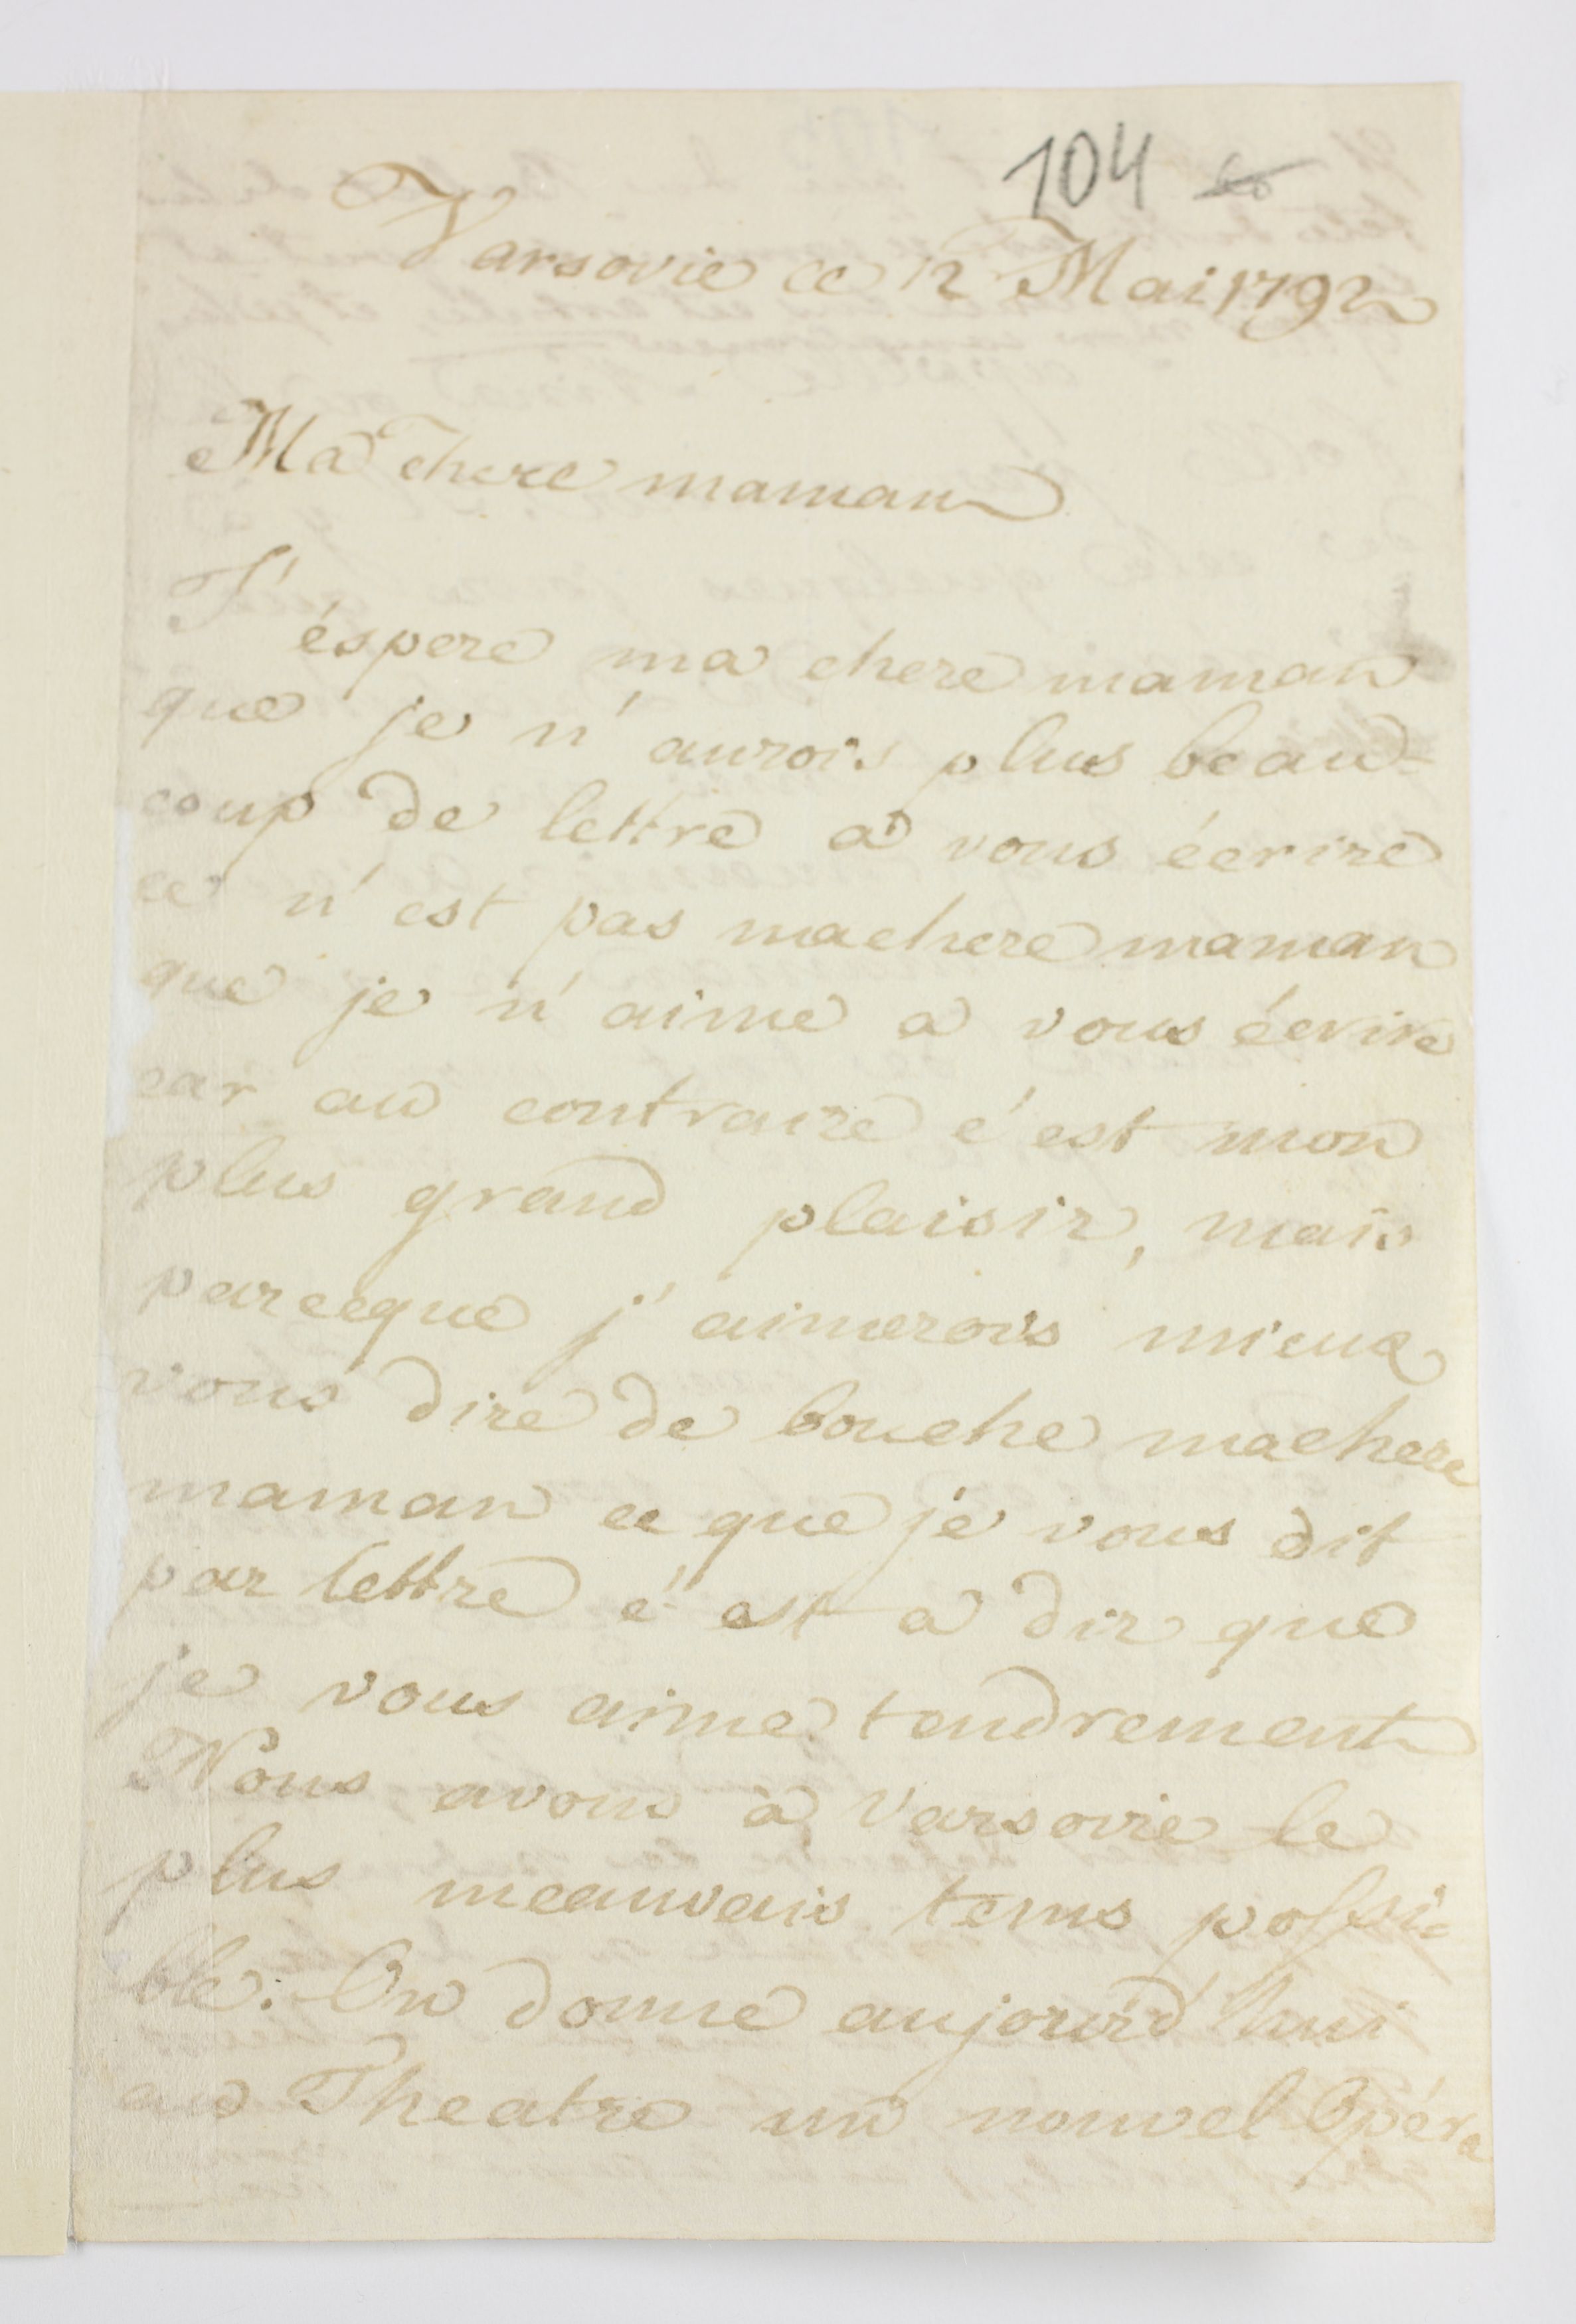 104
Varsovie ce 12 Mai 1792
Ma chere maman
J'
éspere ma chere maman
que je n'aurois plus beau-
coup de lettre a vous écrire
ce n'est pas machere maman
que je n'aime a vous écrire
car au contraire c'est mon
plus grand plaisir, mais
parceque j'aimerois mieux
vous dire de bouche machere
maman ce que je vous dit
par lettre c'est a dir que
je vous aime tendrement
Nous avons à Varsovie le
plus meauvais tems possi-
ble. On donne aujourd'hui
au Theatre un nouvel Opéra